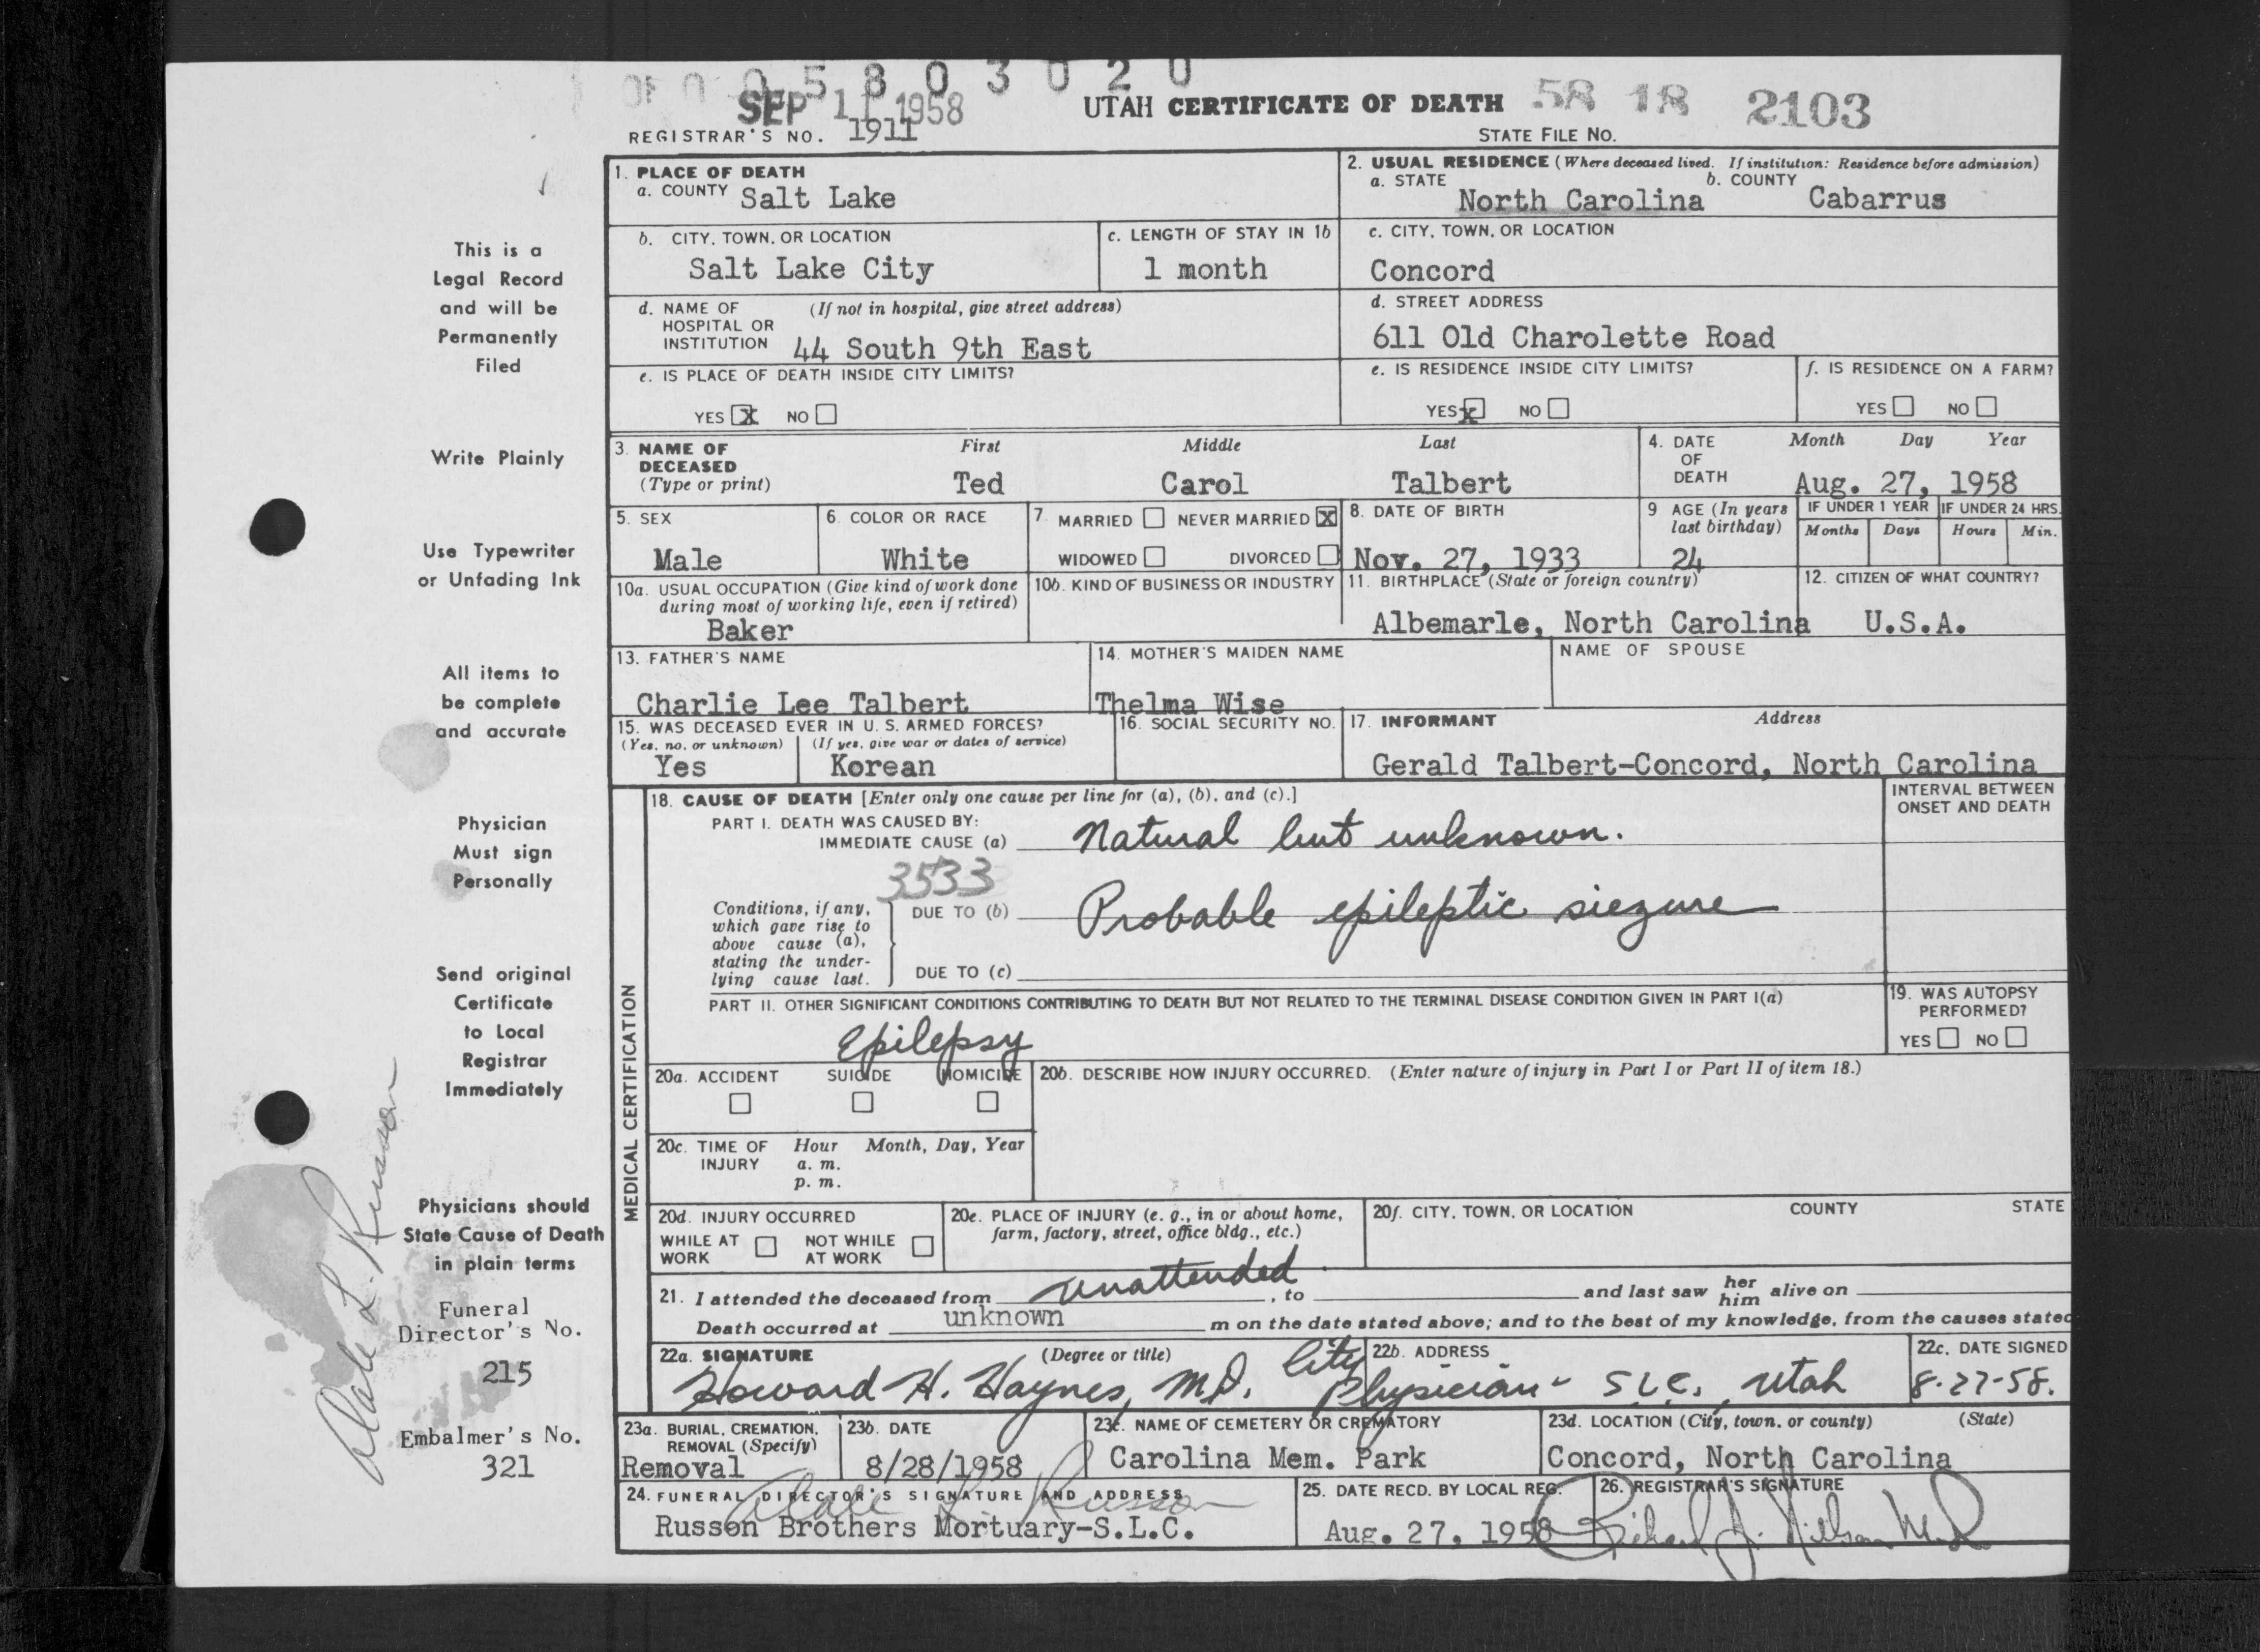 0 5 8 0 3 0 2 0
SEP 11 1958
UTAH CERTIFICATE OF DEATH 58 18 2103
REGISTRAR'S NO. 1911
STATE FILE NO.
This is a
Legal Record
and will be
Permanently
Filed
Write Plainly
Use Typewriter
or Unfading Ink
All items to
be complete
and accurate
Physician
Must sign
Personally
Send original
Certificate
to Local
Registrar
Immediately
Physicians should
State Cause of Death
in plain terms
Funeral
Director's No.
215
Embalmer's No.
321
Dale L. Russon
1. PLACE OF DEATH
a. COUNTY Salt Lake
2. USUAL RESIDENCE (Where deceased lived. If institution: Residence before admission)
a. STATE North Carolina b. COUNTY Cabarrus
b. CITY, TOWN, OR LOCATION
Salt Lake City
c. LENGTH OF STAY IN 1b
1 month
c. CITY, TOWN, OR LOCATION
Concord
d. NAME OF (If not in hospital, give street address)
HOSPITAL OR
INSTITUTION 44 South 9th East
d. STREET ADDRESS
611 Old Charolette Road
e. IS PLACE OF DEATH INSIDE CITY LIMITS?
YES X NO
e. IS RESIDENCE INSIDE CITY LIMITS?
YES X NO
f. IS RESIDENCE ON A FARM?
YES NO
3. NAME OF First Middle Last
DECEASED
(Type or print) Ted Carol Talbert
4. DATE Month Day Year
OF
DEATH Aug. 27, 1958
5. SEX
Male
6. COLOR OR RACE
White
7. MARRIED NEVER MARRIED X
WIDOWED DIVORCED
8. DATE OF BIRTH
Nov. 27, 1933
9 AGE (In years
last birthday)
24
IF UNDER 1 YEAR IF UNDER 24 HRS.
Months Days Hours Min.
10a. USUAL OCCUPATION (Give kind of work done
during most of working life, even if retired)
Baker
10b. KIND OF BUSINESS OR INDUSTRY
11. BIRTHPLACE (State or foreign country)
Albemarle, North Carolina
12. CITIZEN OF WHAT COUNTRY?
U.S.A.
13. FATHER'S NAME
Charlie Lee Talbert
14. MOTHER'S MAIDEN NAME
Thelma Wise
NAME OF SPOUSE
15. WAS DECEASED EVER IN U. S. ARMED FORCES?
(Yes, no, or unknown) (If yes, give war or dates of service)
Yes Korean
16. SOCIAL SECURITY NO.
17. INFORMANT Address
Gerald Talbert-Concord, North Carolina
MEDICAL CERTIFICATION
18. CAUSE OF DEATH [Enter only one cause per line for (a), (b), and (c).]
INTERVAL BETWEEN
ONSET AND DEATH
PART I. DEATH WAS CAUSED BY:
IMMEDIATE CAUSE (a) Natural but unknown.
3533
Conditions, if any,
which gave rise to
above cause (a),
stating the under-
lying cause last.
DUE TO (b) Probable epileptic siezure
DUE TO (c)
PART II. OTHER SIGNIFICANT CONDITIONS CONTRIBUTING TO DEATH BUT NOT RELATED TO THE TERMINAL DISEASE CONDITION GIVEN IN PART I(a)
Epilepsy
19. WAS AUTOPSY
PERFORMED?
YES NO
20a. ACCIDENT SUICIDE HOMICIDE
20b. DESCRIBE HOW INJURY OCCURRED. (Enter nature of injury in Part I or Part II of item 18.)
20c. TIME OF Hour Month, Day, Year
INJURY a. m.
p. m.
20d. INJURY OCCURRED
WHILE AT NOT WHILE
WORK AT WORK
20e. PLACE OF INJURY (e. g., in or about home,
farm, factory, street, office bldg., etc.)
20f. CITY, TOWN, OR LOCATION COUNTY STATE
21. I attended the deceased from unattended, to and last saw her him alive on
Death occurred at unknown m on the date stated above; and to the best of my knowledge, from the causes stated
22a. SIGNATURE (Degree or title)
Howard H. Haynes, M.D. City Physician
22b. ADDRESS
S.L.C., Utah
22c. DATE SIGNED
8-27-58.
23a. BURIAL, CREMATION,
REMOVAL (Specify)
Removal
23b. DATE
8/28/1958
23c. NAME OF CEMETERY OR CREMATORY
Carolina Mem. Park
23d. LOCATION (City, town, or county) (State)
Concord, North Carolina
24. FUNERAL DIRECTOR'S SIGNATURE AND ADDRESS
Dale L. Russon
Russon Brothers Mortuary-S.L.C.
25. DATE RECD. BY LOCAL REG.
Aug. 27, 1958
26. REGISTRAR'S SIGNATURE
Richard J. Nielsen M.D.